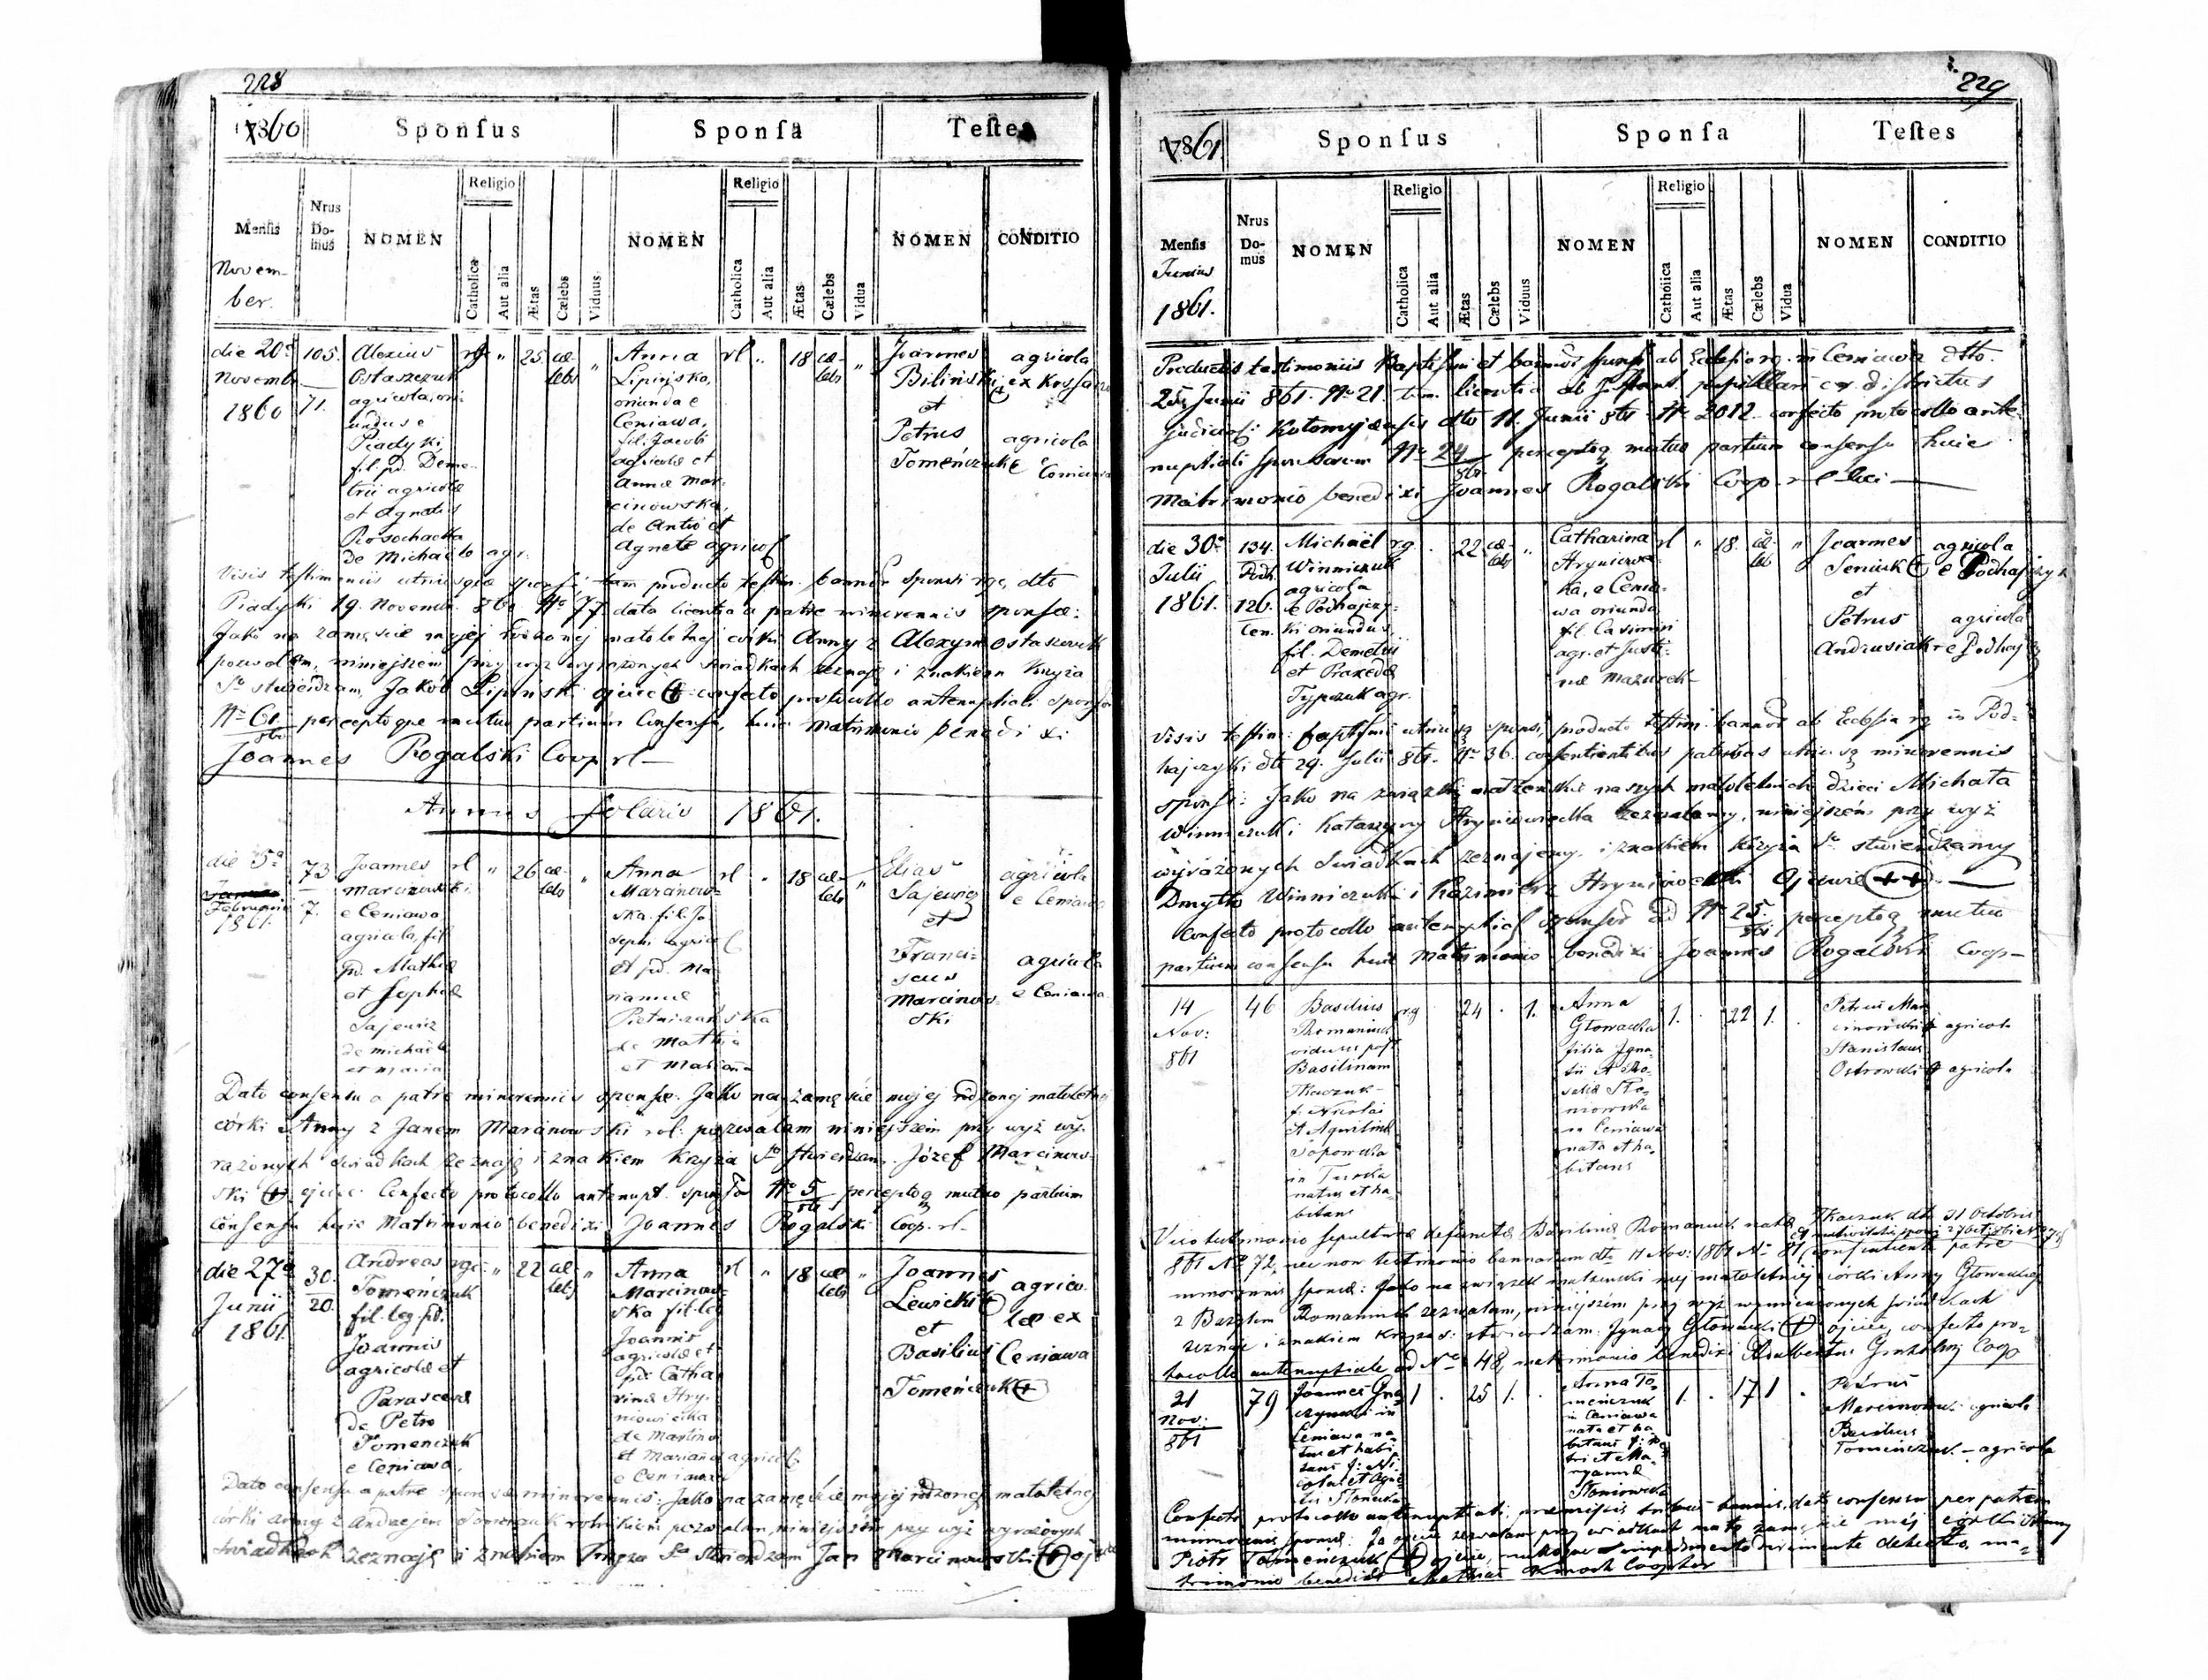 228
1860
Sponsus
Sponsa
Testes
Mensis
Nrus Domus
NOMEN
Religio
Catholica
Aut alia
Ætas
Cælebs
Viduus
NOMEN
Religio
Catholica
Aut alia
Ætas
Cælebs
Vidua
NOMEN
CONDITIO
Novem-
ber.
die 20
Novemb
1860
105.
71.
Alexius
Ostaszczuk
agricola, ori-
undus e
Piadyki,
fil. pd. Deme-
trii agricolæ
et Agnetis
Rosochacka
de Michaelo agr.
25
cæ-
lebs
Anna
Lipińska,
oriunda e
Ceniawa,
fil. Jacobi
agricolæ et
Annæ Mar-
cinowska,
de Antio et
Agnete agricol
rl
18
cæ-
lebs
Joannes
Biliński
et
Petrus
Tomeńczuk
agricola
ex Kossa
agricola
e Ceniawa
Visis testimoniis utriusque sponsi, tam producto testim. bannor sponsi rgc, dto
Piadyki 19. Novemb. 860. No 77 data licentia a patre minorennis sponsæ:
Jako na zamęście mojej rodzonej małoletniej córki Anny z Alexym Ostaszczuk
pozwalam, niniejszem przy wyż wyrażonych świadkach zeznaję i znakiem krzyża
So stwierdzam, Jakób Lipiński ojciec + confecto protocollo antenuptiali sponso
No 61. perceptoque mutuo partium consensu, huic Matrimonio benedixi
Joannes Rogalski Coop rl
Annus Solaris 1861.
die 5a
Februarii
1861.
73
7.
Joannes
Marcinowski
e Ceniawa
agricola, fil.
pd. Mathiæ
et Sophiæ
Sajewicz
de Michaele
et Maria
rl
26
cæ-
lebs
Anna
Maranow-
ska. fil. Jo-
sephi agricol
et pd. Ma-
riannæ
Pietniczańska
de Mathia
et Marianna
rl
18
cæ-
lebs
Elias
Sajewicz
et
Franci-
scus
Marcinow-
ski
agricola
e Ceniawa
agricola
e Ceniawa
Dato consensu a patre minorennis sponsæ. Jako na zamęście mojej rodzonej małoletniej
córki Anny z Janem Maranowski rol. pozwalam niniejszem przy wyż wy-
rażonych świadkach zeznaję i znakiem krzyża So stwierdzam. Józef Marcinow-
ski + ojciec. Confecto protocollo antenupt. sponso No 5 perceptoq mutuo partium
consensu huic Matrimonio benedixi Joannes Rogalski Coop. rl-
die 27a
Junii
1861.
30.
20.
Andreas
Tomeńczuk
fil. leg. pd.
Joannis
agricolæ et
Parascevæ
de Petro
Tomenczuk
e Ceniawa.
22
cæ-
lebs
Anna
Marcinow-
ska fil. leg
Joannis
agricolæ et
pd. Catha-
rinæ Hry-
niowiecka
de Martino
et Marianna agricol
e Ceniawa
rl
18
cæ
lebs
Joannes
Lewicki +
et
Basilius
Tomeńczuk +
agrico-
læ ex
Ceniawa
Dato consensu a patre sponsæ minorennis: Jako na zamęście mojej rodzonej małoletniej
córki Anny z Andrzejem Tomenczuk rolnikiem pozwalam, niniejszem przy wyż wyrażonych
świadkach zeznaję i znakiem krzyża So stwierdzam Jan Marcinowski +
229
1861.
Sponsus
Sponsa
Testes
Mensis
Nrus Domus
NOMEN
Religio
Catholica
Aut alia
Ætas
Cælebs
Viduus
NOMEN
Religio
Catholica
Aut alia
Ætas
Cælebs
Vidua
NOMEN
CONDITIO
Junius
1861.
Productis testimoniis Baptismi et bannor sponsi ab Ecclesia rg. in Ceniawa dtto.
25 Junii 861. No 21. tum licentia ab Instant. pupillari cx. districtus
Judicii Kołomyjensis dtto 11. Junii 861 No 2012. confecto protocollo ante-
nuptiali sponsorum No 24 perceptoq mutuo partium consensu huic
Matrimonio benedixi Joannes Rogalski Coop. r l
die 30a
Julii
1861.
134.
Podh.
126.
Cen.
Michaël
Winniczuk
agricola
e Podhajczy-
ki oriundus,
fil. Demetrii
et Praxedæ
Typczuk agr.
rg
22
cæ-
lebs
Catharina
Hryniewie-
ka, e Cenia-
wa oriunda
fil. Casimiri
agr. et Justi-
næ Mazurek
rl
18.
cæ-
leb
Joannes
Seniuk +
et
Petrus
Andrusiak
agricola
e Podhajczyk
agricola
e Podhaj
Visis testim: baptismi utriusq sponsi, producto testim. bannor ab Ecclesia rg in Pod-
hajczyki dto 29. Julii 861. No 36. consentientibus patribus utriusq minorennis
sponsi: Jako na związki małżeńskie naszych małoletnich dzieci Michała
Winniczuk i Katarzyny Hryniewiecka zezwalamy, niniejszem przy wyż
wyrażonych świadkach zeznajemy, i znakiem krzyża So stwierdzamy
Dmytro Winniczuk i Kazimierz Hryniowiecki Ojcowie ++
Confecto protocollo antenuptial sponsor ad No 25. perceptoq mutuo
partium consensu huic Matrimonio benedixi Joannes Rogalski Coop-
14
Nov:
861
46
Basilius
Romaniuk
viduus post
Basilinam
Tkaczuk-
f. Nicolai
et Aquilinæ
Toporowska
in Turka
natus et ha-
bitans
rg
24
1.
Anna
Głowacka
filia Igna-
tii et Ro-
saliæ Sło-
niowska
in Ceniawa
nata et ha-
bitans
1.
22
1.
Petrus Mar-
cinowski + agricola
Stanislaus
Ostrowski + agricola
Viso testimonio sepulturæ defunctæ Basilinæ Romaniuk natæ Tkaczuk dto 31 Octobris
861 No 72, nec non testimonio bannorum dto 11 Nov: 1861 No 81 consentiente patre
minorennis sponsæ: Jako na związek małżeński mej małoletniej córki Anny Głowackiej
z Bazylim Romaniuk zezwalam, niniejszém przy wyż wymienionych świadkach
zeznaję i znakiem krzyża s: stwierdzam: Ignacy Głowacki + ojciec, confecto pro-
tocollo antenuptiale ad No 48, matrimonio benedixi Adalbertus Coop
21
Nov:
861
79
Joannes Gra-
czynski in
Ceniawa na-
tus et habi-
tans f: Ni-
colai et Agne-
tis Słonicka
1
25
1.
Anna To-
meńczuk
in Ceniawa
nata et ha-
bitans f: Pe-
tri et Ma-
ryannæ
Słoniowska
1.
17
1
Petrus
Marcinowski agricola
Basilius
Tomeńczuk - agricola
Confecto protocollo antenuptiali, præmissis tribus bannis, dato consensu per patrem
minorennis sponsæ: Ja ojciec zezwalam przy świadkach na to zamęście méj córki Anny
Piotr Tomeńczuk + ojciec, nulloque impedimento dirimente detecto, ma-
trimonio benedixi Mathias Coopter